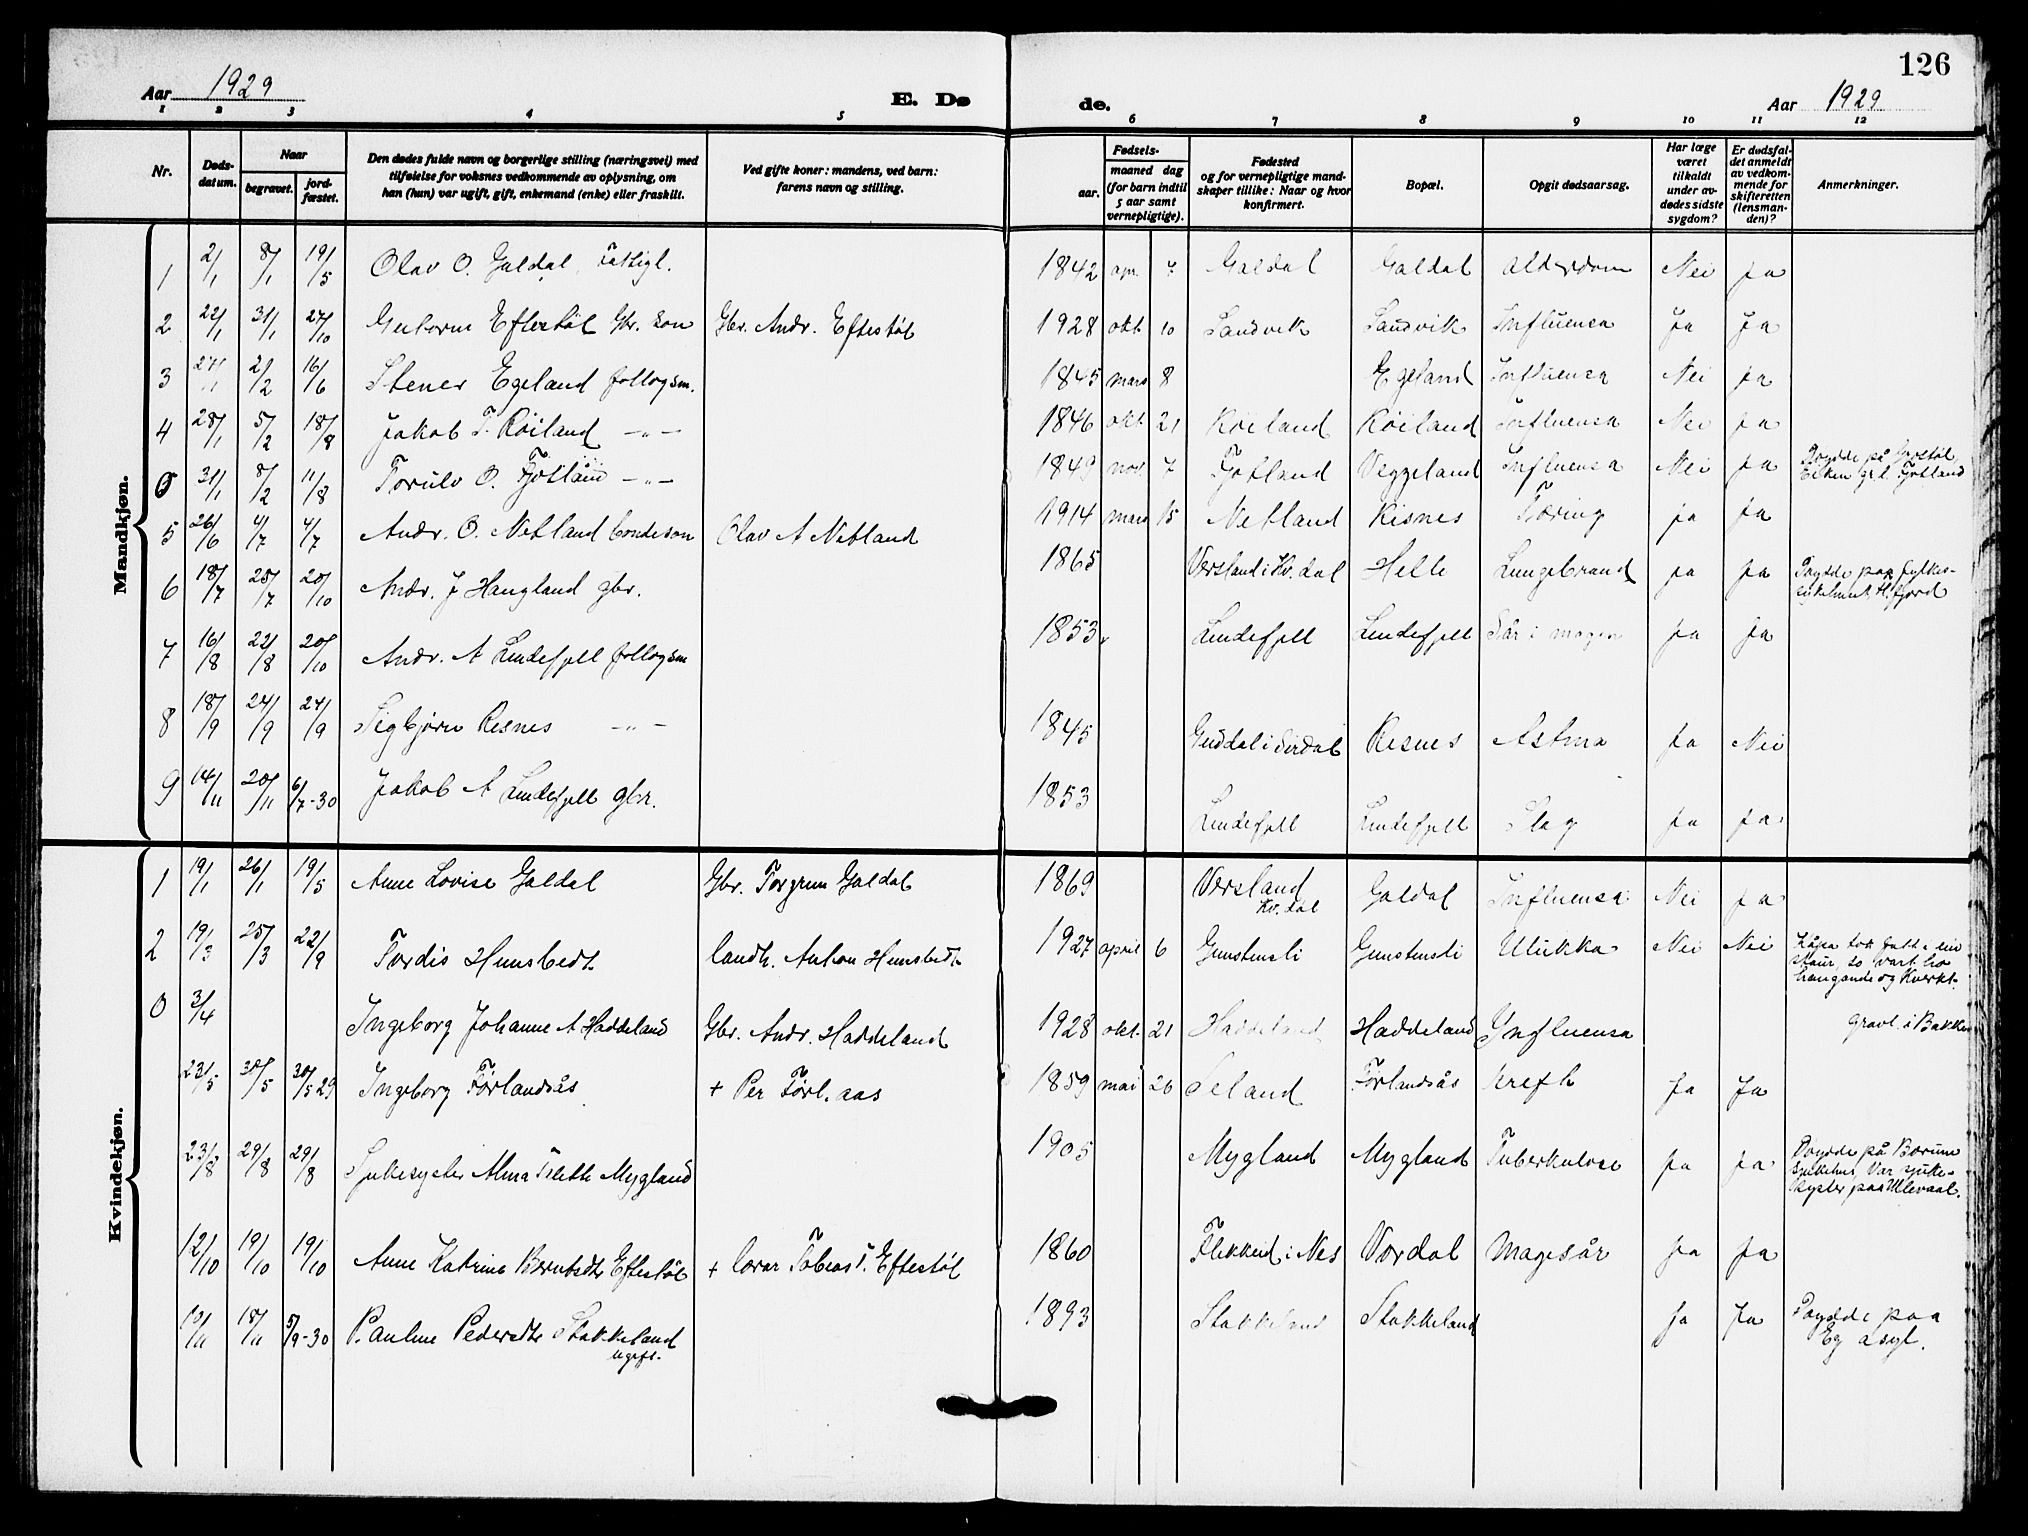 126
Aar 1929 E. Dø de. Aar 1929
1 2 3 4 5 6 7 8 9 10 11 12
Nr. Døds-datum. Naar begravet. jord-fæstet. Den dødes fulde navn og borgerlige stilling (næringsvei) med tilføielse for voksnes vedkommende av oplysning, om han (hun) var ugift, gift, enkemand (enke) eller fraskilt. Ved gifte koner: mandens, ved barn: farens navn og stilling. Fødsels- aar. maaned dag (for barn indtil 5 aar samt vernepligtige). Fødested og for vernepligtige mand-skaper tillike: Naar og hvor konfirmert. Bopæl. Opgit dødsaarsag. Har læge været tilkaldt under av-dødes sidste sygdom? Er dødsfal-det anmeldt av vedkom-mende for skifteretten (lensman-den)? Anmerkninger.
Mandkjøn.
1 2/1 8/1 19/5 Olav O. Galdal, Fattigl. 1842 apr. 7 Galdal Galdal Alderdom Nei Ja
2 22/1 31/1 27/10 Guttorm Eftestøl Gbr. son Gbr. Andr. Eftestøl 1928 okt 10 Sandvik Sandvik Influensa Ja Ja
3 27/1 2/2 16/6 Stener Egeland follogsm. 1845 mars 8 Egeland Influensa Nei Ja
4 28/1 5/2 18/8 Jakob T. Röiland -"- 1846 okt. 21 Röiland Röiland Influensa Nei Ja
0 31/1 8/2 11/8 Torulv O. Fjotland -"- 1849 nov. 7 Fjotland Veggeland Influensa Nei Ja Döydde på Eiken grl. Fjotland
5 26/6 4/7 4/7 Andr. O. Netland bondeson Olav A Netland 1914 mars 15 Netland Risnes Tæring Ja Ja
6 18/7 25/7 20/10 Andr. J Haugland gbr. 1865 Versland i Kv. dal Helle Lungebrand Ja Ja Döydde paa fylkes-sykehuset Fl.fjord
7 16/8 22/8 20/10 Andr. A Lindefjell follogsm 1853 Lindefjell Lindefjell Sår i magen Ja Ja
8 18/9 24/9 24/9 Sigbjørn Risnes -"- 1845 Guddal i Sirdal Risnes Astma Ja Nei
9 14/11 20/11 6/7-30 Jakob A Lindefjell gbr. 1853 Lindefjell Lindefjell Slag Ja Ja
Kvindekjøn.
1 19/1 26/1 19/5 Anne Lovise Galdal Gbr. Torgrim Galdal 1869 Versland Kv. dal Galdal Influensa Nei Ja
2 19/3 25/3 22/9 Tordis Hunsbedt landh. Anton Hunsbedt 1927 april 6 Gunstensli Gunstensli Ulukka Nei Nei Kåpa tok fatt i ein staur, so vart ho hangande og kverkt.
0 3/4 Ingeborg Johanne A Haddeland Gbr. Andr. Haddeland 1928 okt. 21 Haddeland Haddeland Influensa Gravl. i Bakke
23/5 30/5 30/5 29 Ingeborg Førlandsås + Per Førl. aas 1859 mai 26 Seland Førlandsås Kreft Ja Ja
23/8 29/8 29/8 Sjukesyster Alma Mygland 1905 Mygland Mygland Tuberkulose Ja Ja Döydde på Bærum sjukehus. Var sjuke-syster paa Ullevaal.
12/10 19/10 19/10 Anne Katrine Berntsdtr Eftestøl + lærar Tobias T. Eftestøl 1860 Flikkeid i Nes Vordal Magesår Ja Ja
18/11 5/9-30 Pauline Pedersdtr Stakkeland ugift. 1893 Stakkeland Stakkeland Ja Ja Döydde paa Eg asyl.